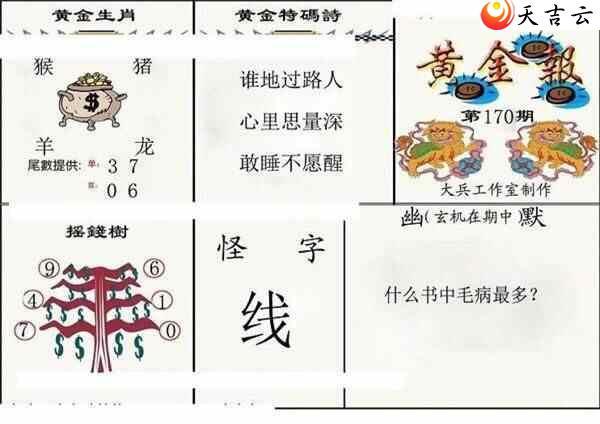 黄金生肖
猴 猪
$
羊 龙
尾數提供: 单: 3 7
双: 0 6
黄金特碼詩
谁地过路人
心里思量深
敢睡不愿醒
天吉云
黄金報
第170期
大兵工作室制作
摇錢樹
9 6
4 1
7 0
怪字
线
幽(玄机在期中)默
什么书中毛病最多?